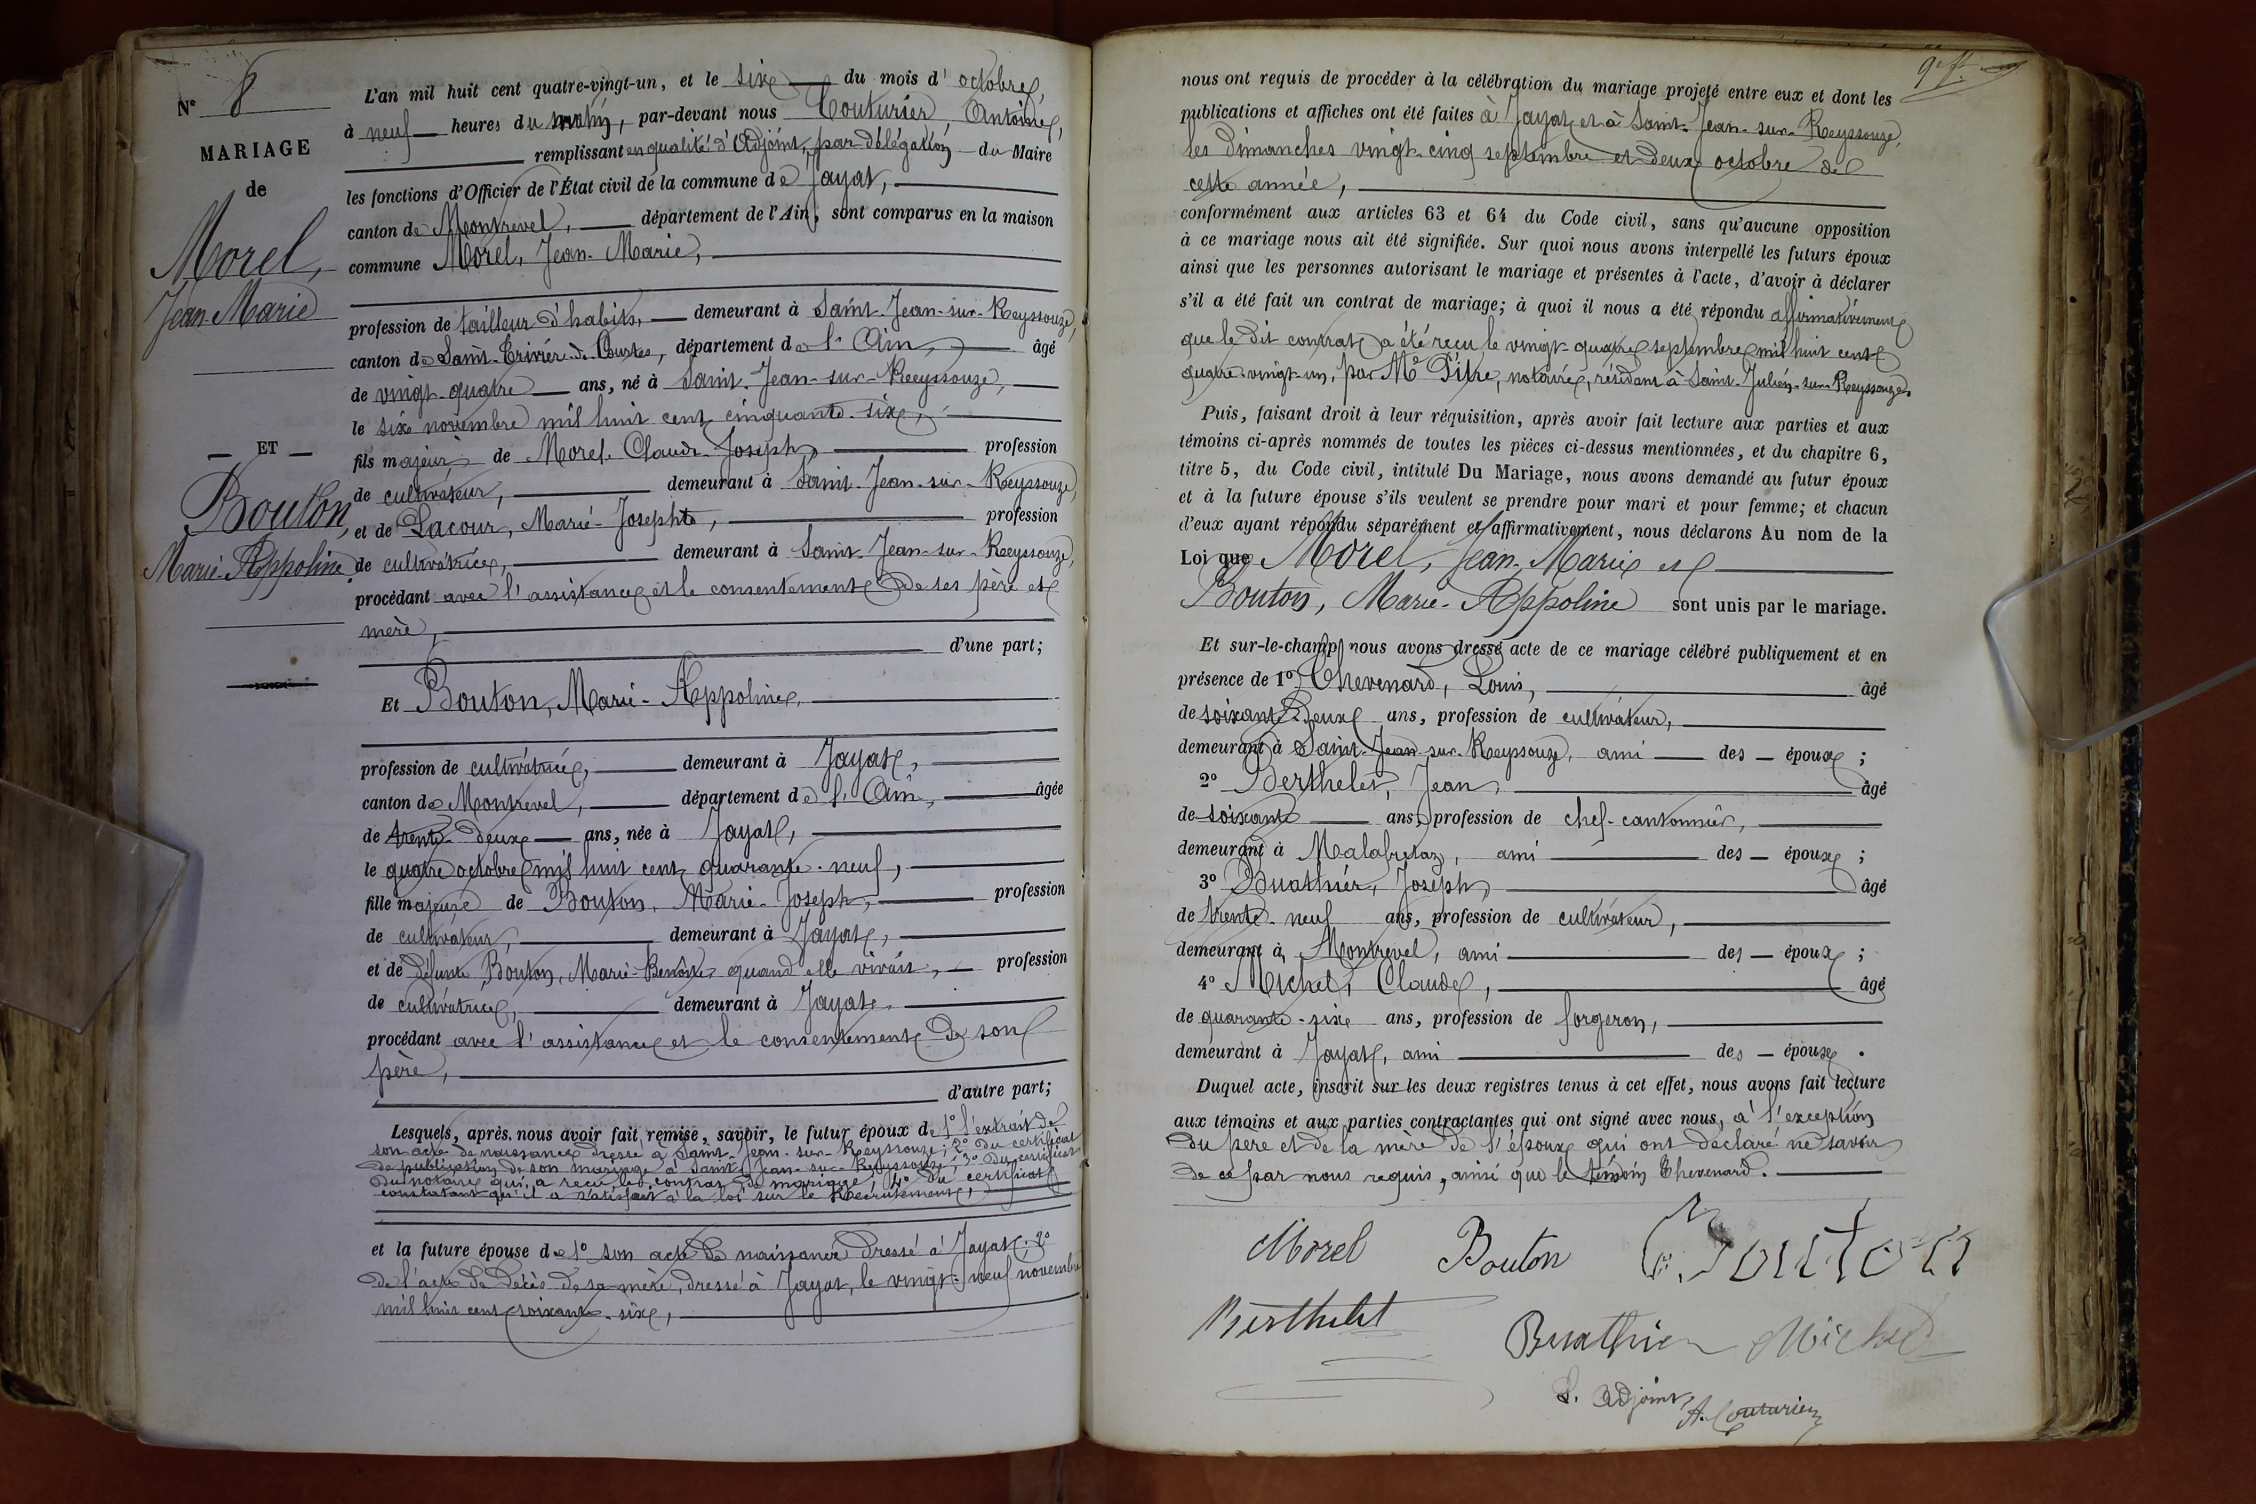 N° 8
MARIAGE
de
Morel,
Jean Marie
— ET —
Bouton,
Marie-Appoline.
L'an mil huit cent quatre-vingt-un, et le six du mois d'octobre,
à neuf heures du matin, par-devant nous Couturier Antoine,
remplissant en qualité d'Adjoint, par délégation du Maire
les fonctions d'Officier de l'État civil de la commune de Jayat,
canton de Montrevel, département de l'Ain, sont comparus en la maison
commune Morel, Jean-Marie,
profession de tailleur d'habits, demeurant à Saint-Jean-sur-Reyssouze,
canton de Saint-Trivier-de-Courtes, département de l'Ain, âgé
de vingt-quatre ans, né à Saint-Jean-sur-Reyssouze,
le six novembre mil huit cent cinquante-six,
fils majeur de Morel Claude-Joseph, profession
de cultivateur, demeurant à Saint-Jean-sur-Reyssouze,
et de Lacour, Marie-Josephte, profession
de cultivatrice, demeurant à Saint-Jean-sur-Reyssouze,
procédant avec l'assistance et le consentement de ses père et
mère,
d'une part;
Et Bouton, Marie-Appoline,
profession de cultivatrice, demeurant à Jayat,
canton de Montrevel, département de l'Ain, âgée
de trente-deux ans, née à Jayat,
le quatre octobre mil huit cent quarante-neuf,
fille majeure de Bouton, Marie-Joseph, profession
de cultivateur, demeurant à Jayat,
et de défunte Bouton, Marie-Benoîte, quand elle vivait, profession
de cultivatrice, demeurant à Jayat,
procédant avec l'assistance et le consentement de son
père,
d'autre part;
Lesquels, après nous avoir fait remise, savoir, le futur époux de 1° l'extrait de
son acte de naissance dressé à Saint-Jean-sur-Reyssouze; 2° du certificat
de publication de son mariage à Saint-Jean-sur-Reyssouze; 3° du certificat
du notaire qui a reçu le contrat de mariage; 4° du certificat
constatant qu'il a satisfait à la loi sur le Recrutement,
et la future épouse de 1° son acte de naissance dressé à Jayat; 2°
de l'acte de décès de sa mère, dressé à Jayat, le vingt-neuf novembre
mil huit cent soixante-six,
nous ont requis de procéder à la célébration du mariage projeté entre eux et dont les
publications et affiches ont été faites à Jayat et à Saint-Jean-sur-Reyssouze,
les dimanches vingt-cinq septembre et deux octobre de
cette année,
conformément aux articles 63 et 64 du Code civil, sans qu'aucune opposition
à ce mariage nous ait été signifiée. Sur quoi nous avons interpellé les futurs époux
ainsi que les personnes autorisant le mariage et présentes à l'acte, d'avoir à déclarer
s'il a été fait un contrat de mariage; à quoi il nous a été répondu affirmativement
que le dit contrat a été reçu le vingt-quatre septembre mil huit cent
quatre-vingt-un, par Me Pitre, notaire, résidant à Saint-Julien-sur-Reyssouze.
Puis, faisant droit à leur réquisition, après avoir fait lecture aux parties et aux
témoins ci-après nommés de toutes les pièces ci-dessus mentionnées, et du chapitre 6,
titre 5, du Code civil, intitulé Du Mariage, nous avons demandé au futur époux
et à la future épouse s'ils veulent se prendre pour mari et pour femme; et chacun
d'eux ayant répondu séparément et affirmativement, nous déclarons Au nom de la
Loi que Morel, Jean-Marie et
Bouton, Marie-Appoline sont unis par le mariage.
Et sur-le-champ nous avons dressé acte de ce mariage célébré publiquement et en
présence de 1° Chevenard, Louis, âgé
de soixante-deux ans, profession de cultivateur,
demeurant à Saint-Jean-sur-Reyssouze, ami des époux;
2° Berthelet, Jean, âgé
de soixante ans, profession de chef-cantonnier,
demeurant à Malafretaz, ami des époux;
3° Buathier, Joseph, âgé
de trente-neuf ans, profession de cultivateur,
demeurant à Montrevel, ami des époux;
4° Michel, Claude, âgé
de quarante-six ans, profession de forgeron,
demeurant à Jayat, ami des époux.
Duquel acte, inscrit sur les deux registres tenus à cet effet, nous avons fait lecture
aux témoins et aux parties contractantes qui ont signé avec nous, à l'exception
du père et de la mère de l'époux qui ont déclaré ne savoir
de ce par nous requis, ainsi que le témoin Chevenard.
Morel Bouton Bouton
Berthelet
Buathier Michel
L. Adjoint,
A. Couturier